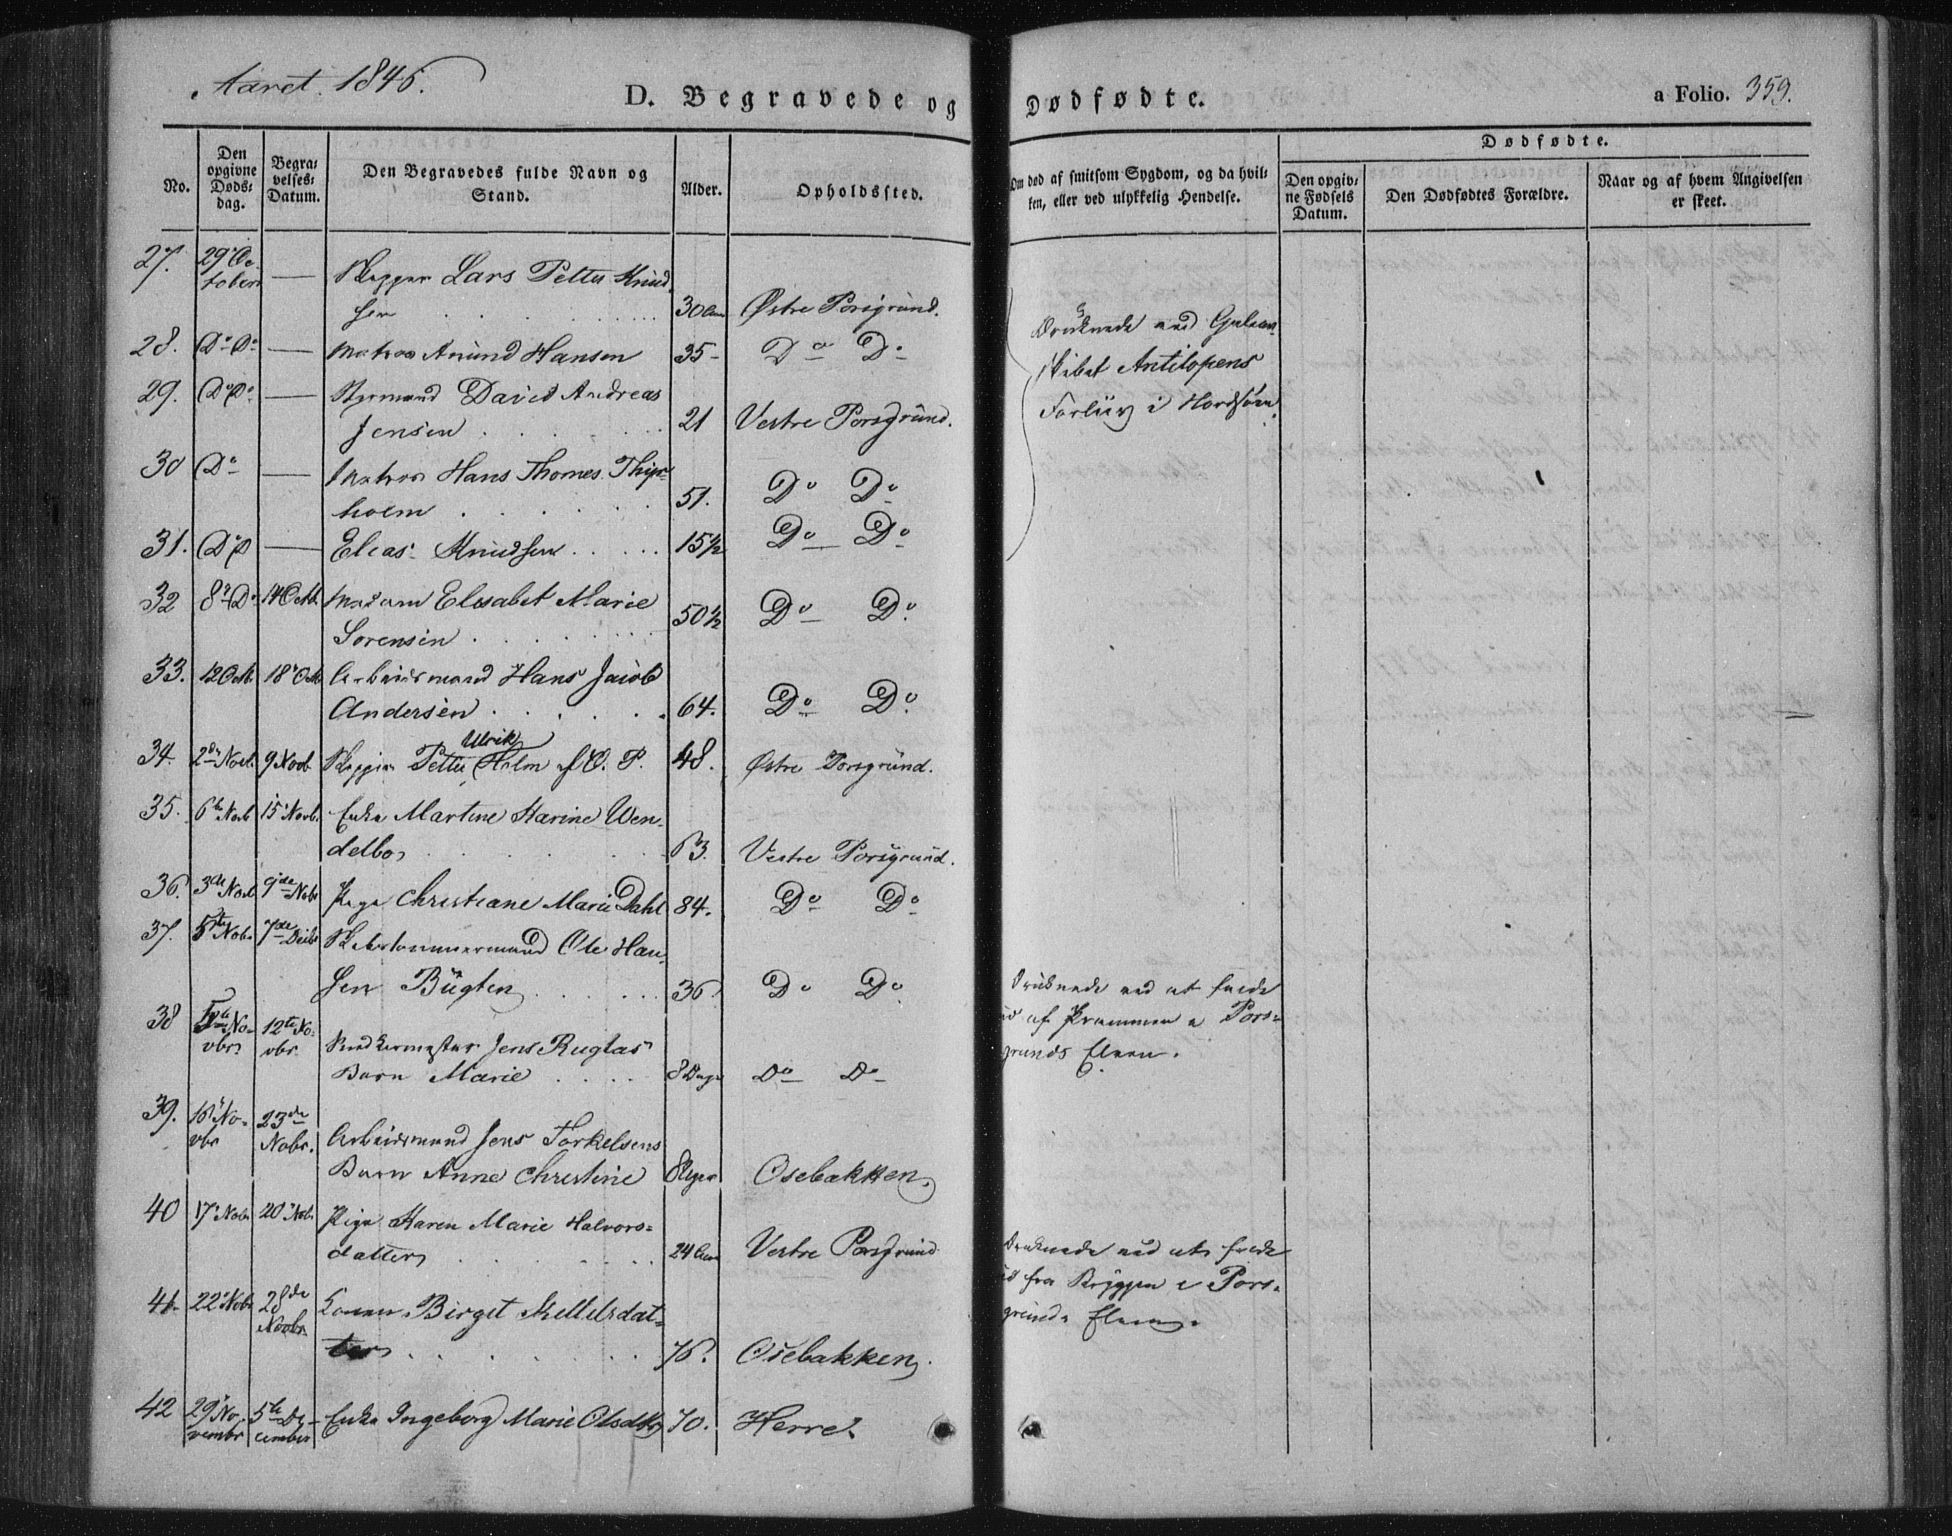 Aaret 1846.
D. Begravede og Dødfødte.
a Folio. 359.
No.
Den opgivne Døds-dag.
Begravelses-Datum.
Den Begravedes fulde Navn og Stand.
Alder.
Opholdssted.
Om død af smitsom Sygdom, og da hvilken, eller ved ulykkelig Hendelse.
Dødfødte.
Den opgivne Fødsels Datum.
Den Dødfødtes Forældre.
Naar og af hvem Angivelsen er skeet.
27. 29 October — Skipper Lars Petter Knudsen 30 Østre Porsgrund.
28. Do Do — Matros Amund Hansen 35 Do Do
29. Do Do — Styrmand David Andreas Jensen 21 Vestre Porsgrund.
30 Do — Matros Hans Thomes 51. Do Do
31. Do Do — Elias Knudsen 15½ Do Do
Druknede ved
skibet Antilopens
Forliis i Nordsøen.
32 8 Do 14 Octb. Madam Elisabet Marie Sørensen 50½ Do Do
33. 12 Octb. 18 Octb Arbeidsmand Hans Jacob Andersen 64. Do Do
34. 2den Novb. 9 Novb Skipper Petter Ulrik Holm af Ø. P. 48. Østre Porsgrund.
35. 6te Novb 15 Novb. Enke Martine Karine Wendelbo 63. Vestre Porsgrund.
36. 3die Novb 9de Nobr Pige Christiane Marie Dahl 84. Do Do
37. 5te Nob. 7de Decbr Skibstømmermand Ole Hansen Bügten 36. Do Do
Druknede ved at falde
ud af Prammen i Pors-
grunds Elven.
38 5te Novbr 12te Novbr Jens Ruglas Barn Marie 8 Dage Do Do
39. 16 Novbr 23de Nobr. Arbeidsmand Jens Torkelsens Barn Anne Christine 8 Uger Osebakken
40 17 Nobr 20 Nob. Pige Karen Marie Halvorsdatter 24 Vestre Porsgrund
Druknede ved at falde
ud fra Bryggen i Pors-
grunds Elven.
41. 22 Nobr 28de Novbr. Konen Birget Kettelsdatter 76. Osebakken.
42 29 November 5te December Enke Ingeborg Marie Olsdtr 70. Herre.